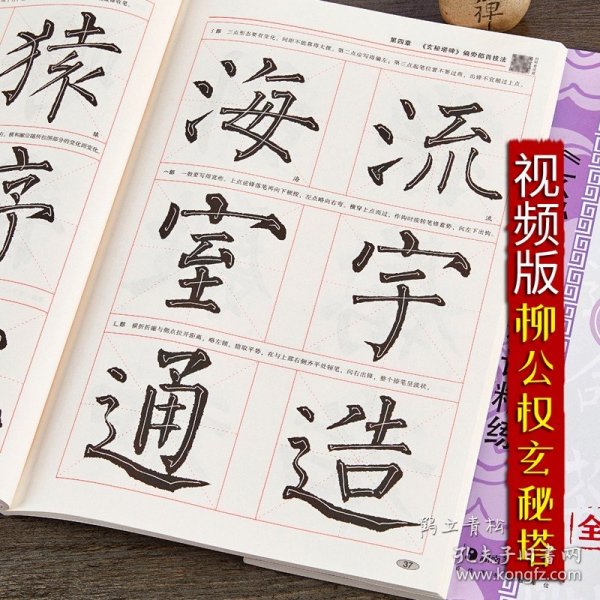 第四章 《玄秘塔碑》偏旁部首技法
氵部 三点形态要有变化，间距不能靠得太拢。第二点应写得偏左；第三点起笔位置不要过高，出锋不宜超过上点。
海 流
海 流
宀部 一般要写得宽些，上点逆锋落笔再向下顿按，左点略向右弯，横穿上点而过，作钩时提转笔锋蓄势，向左下出钩。
室 宇
辶部 横折折撇与侧点拉开距离，略左倾，捺取平势，在与上部右侧齐平处铺笔，向右出锋，整个捺笔呈波状。
通 造
37
猿
猿
序
禅
视频版
柳公权玄秘塔
精练
全
鹤立青松
孔夫子旧书网
www.kongfz.com